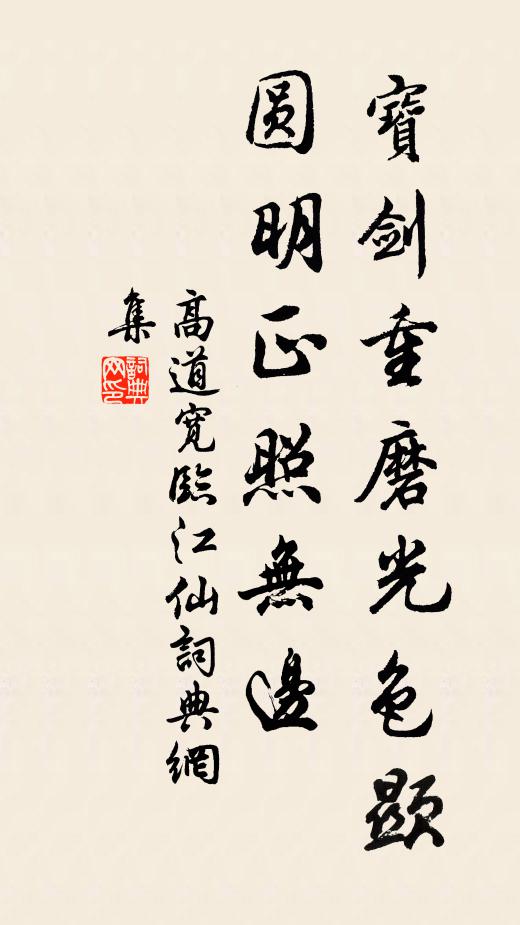 寶劍重磨光色顯
圆明正照無邊
高道寬臨江仙詞典網
集
詞典
网印